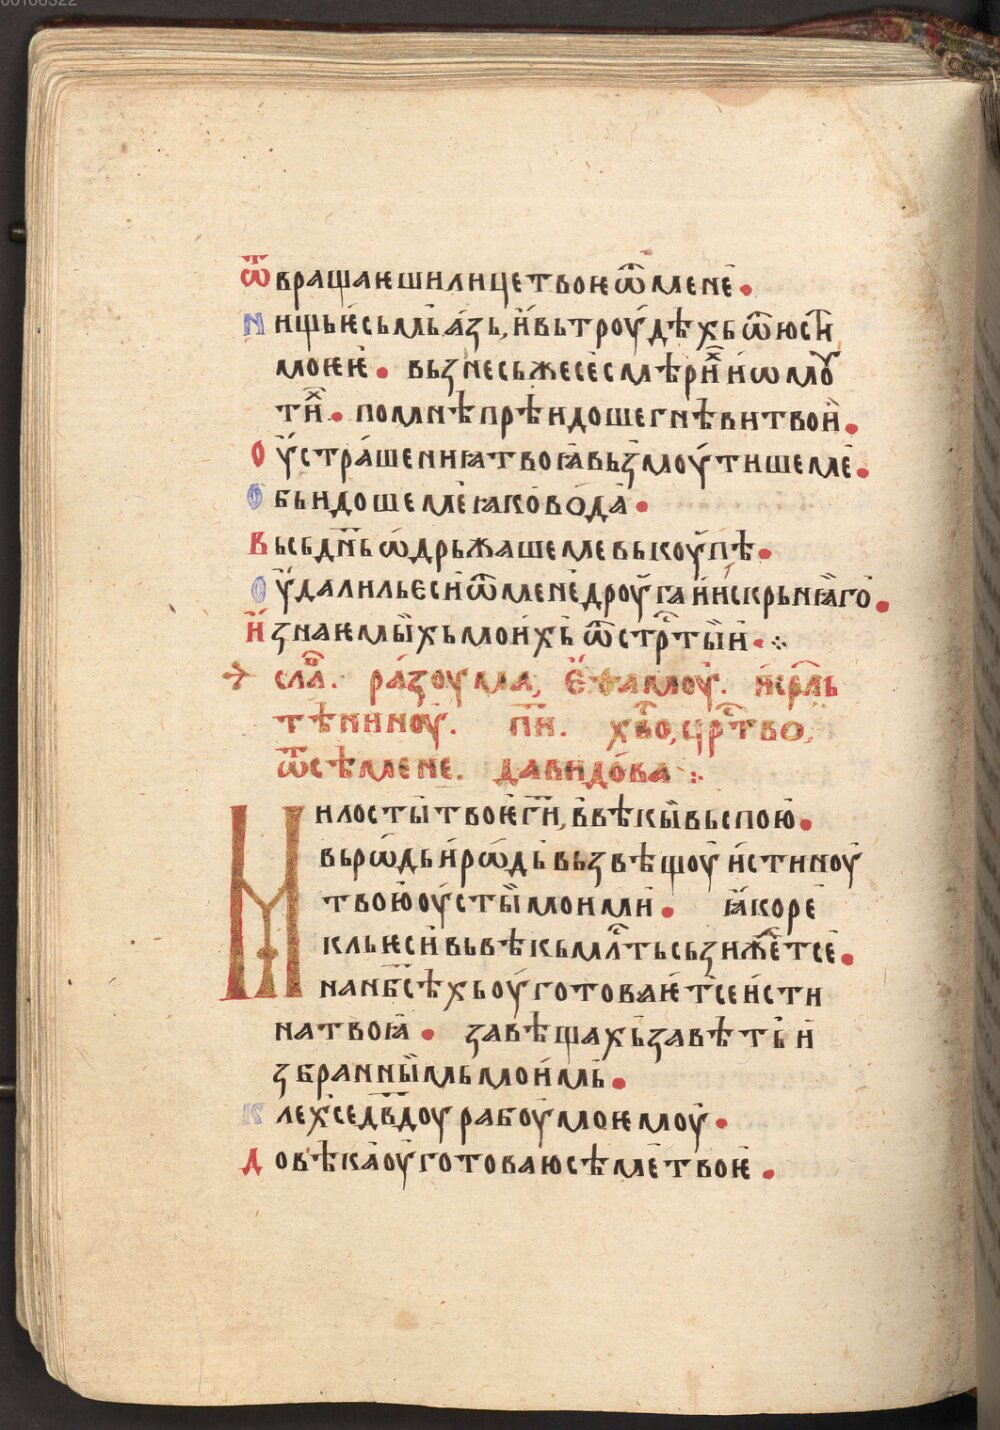 00106322
ѿвращаѥши лице твоѥ ѿ мене•
Нищь ѥсьмь азь, и вь троудѣхь ѿ юсти
моѥѥ• вьзнес же се смѣрихи и ѡмоу
тих• по мнѣ прѣидоше гнѣви твои•
Оустрашениꙗ твоꙗ вьзмоутише ме•
Обьидоше ме ꙗко вода•
Вьсь днь ѡдрьжаше ме вькоупѣ•
Оудалиль ѥси ѿ мене дроуга и искрьнꙗго•
И знаѥмыхь моихь ѿ стртыи•⁘
сла. разоума, еѳамоу. исрль
тѣниноу. пн. хво, цртво,
ѿ сѣмене. давидова⁘
Милости твоѥ ги, в вѣкы вьспою•
вь рѡдь и рѡдь вьзвѣщоу истиноу
твою оусты моими• ꙗко ре
кль ѥси вь вѣкь млть сьзижет се•
на нбсѣхь оуготоваѥт се исти
на твоꙗ• завѣщахь завѣть и
збраннымь моимь•
Клех се двдоу рабоу моѥмоу•
До вѣка оуготоваю сѣме твоѥ•